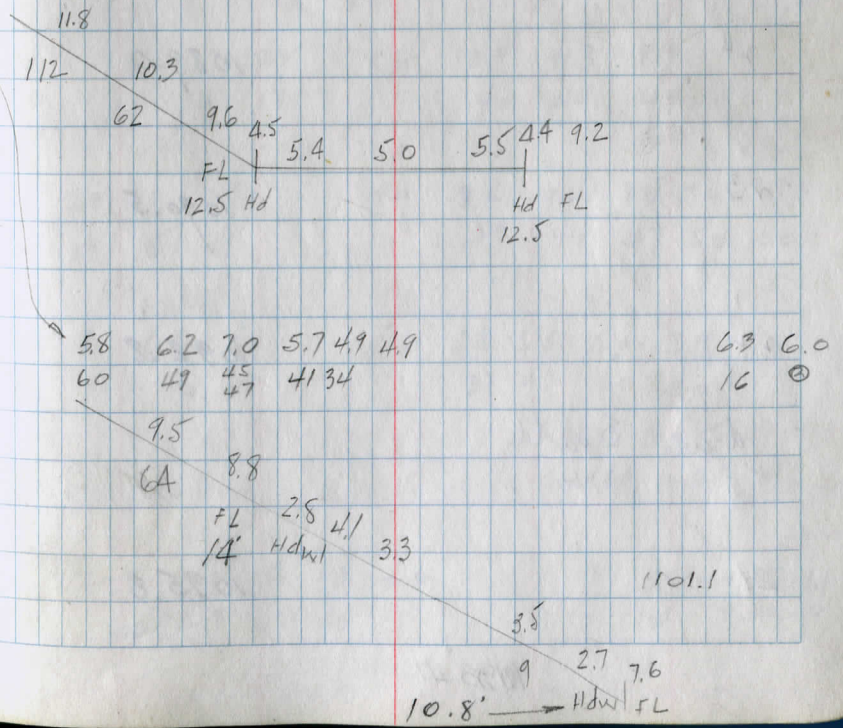 11.8
112 10.3
62 9.6 4.5 5.4 5.0 5.5 4.4 9.2
FL
12.5 Hd Hd FL
12.5
5.8 6.2 7.0 5.7 4.9 4.9 6.3 6.0
60 49 45 41 34 16
47
9.5
64 8.8
FL 2.8 4.1
14' Hdwl 3.3
1101.1
3.5
9 2.7 7.6
10.8' Hdwl FL